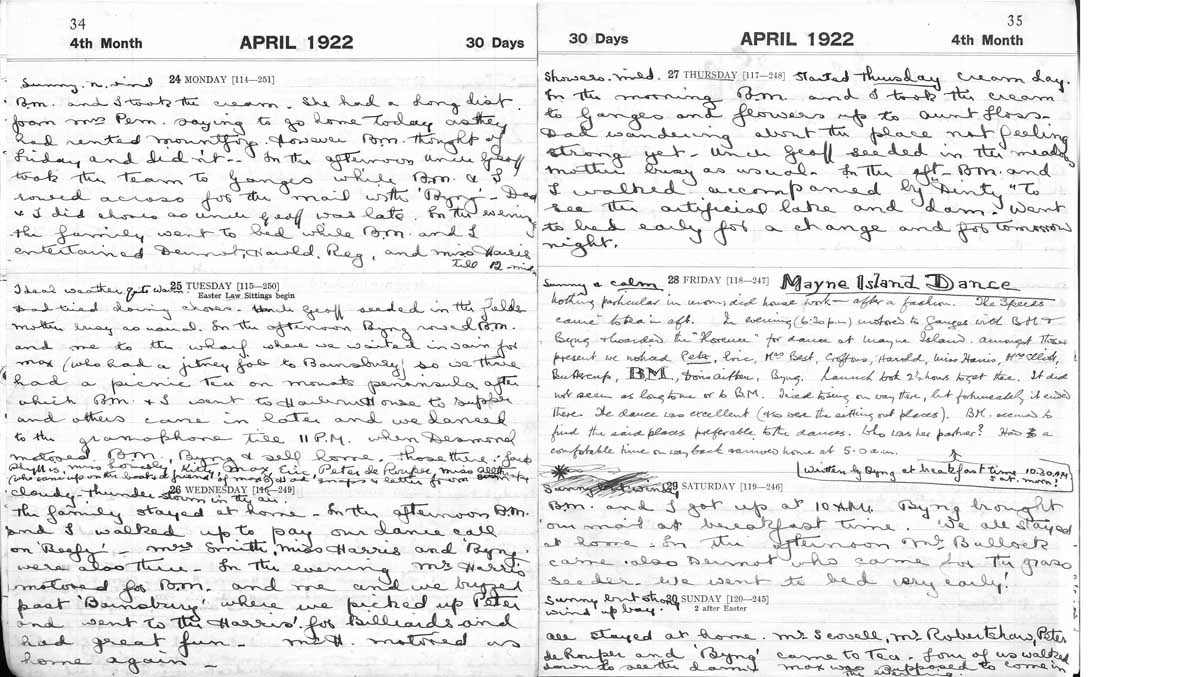 34
4th Month APRIL 1922 30 Days
Sunny. n. wind 24 MONDAY [114—251]
B.M. and I took the cream. She had a long dist.
from Mrs Penn. saying to go home today as they
had rented mountjoy. However B.M. thought of
Friday and did it - In the afternoon Uncle Geoff
took the team to Ganges while B.M. & I
rowed across for the mail with 'Byng' - Dad
& I did chores as Uncle Geoff was late. In the evening
the family went to bed while B.M. and I
entertained Dermot, Harold, Reg, and Miss Harris
till 12 mid.
Ideal weather quite warm. 25 TUESDAY [115—250]
Easter Law Sittings begin
Dad tried doing chores. Uncle Geoff seeded in the fields
mother busy as usual. In the afternoon Byng rowed B.M.
and me to the wharf where we waited in vain for
Max (who had a jitney job to Bainsbury) so we three
had a picnic tea on Mouats peninsula after
which B.M. & I went to Harbour House to supper
and others came in later and we danced
to the gramophone till 11 P.M. when Desmond
motored B.M., Byng & self home. Those there:
Phyllis, Miss Kitty, Max, Eric, Peter de Rouper, Miss
(who came up on the boat a friend of
cloudy - thunder storm in the air.
26 WEDNESDAY [116—249]
The family stayed at home - In the afternoon B.M.
and I walked up to pay our dance call
on 'Beefy' - Mrs Smith, Miss Harris and 'Byng'
were also there - In the evening Mr Harris
motored for B.M. and me and we buzzed
past 'Bainsbury' where we picked up Peter
and went to the Harris' for Billiards and
had great fun - Mr H. motored us
home again -
35
30 Days APRIL 1922 4th Month
Showers. mild. 27 THURSDAY [117—248] Started Thursday cream day.
In the morning B.M. and I took the cream
to Ganges and flowers up to Aunt Floss -
Dad wandering about the place not feeling
strong yet - Uncle Geoff seeded in the meadow
mother busy as usual. In the aft - B.M. and
I walked accompanied by "Dinty" to
see the artificial lake and dam - Went
to bed early for a change and for tomorrow
night.
Sunny & calm 28 FRIDAY [118—247] Mayne Island Dance
Nothing particular in morn; did house work - after a fashion. The Speeds
came to tea in aft. In evening (6:30 p.m) motored to Ganges with B.M. &
Byng & boarded the "Florence" for dance at Mayne Island. Amongst those
present we noticed Peter, Eric, Mrs Best, Croftons, Harold, Miss Harris, Mrs
Buttercup, BM, Doris Aitken, Byng. Launch took 2½ hours to get there. It did
not seem as long to me or to B.M. Tried to sing on way there, but fortunately it ended
there. The dance was excellent (& so were the sitting out places). B.M. seemed to
find the said places preferable to the dances. Who was her partner? Had a
comfortable time on way back & arrived home at 5.0 a.m.
Written by Byng at breakfast time 10.30 A.M
Sat. morn!
Sunny windy 29 SATURDAY [119—246]
B.M. and I got up at 10 A.M. Byng brought
our mail at breakfast time. We all stayed
at home - In the afternoon Mr Bullock
came also Dermot who came for the grass
seeder. We went to bed very early!
Sunny but strong 30 SUNDAY [120—245]
wind up bay. 2 after Easter
All stayed at home. Mr Scovell, Mr Robertshaw, Peter
de Rouper and 'Byng' came to Tea. Four of us walked
down to see the dam. Max was supposed to come in
the evening.